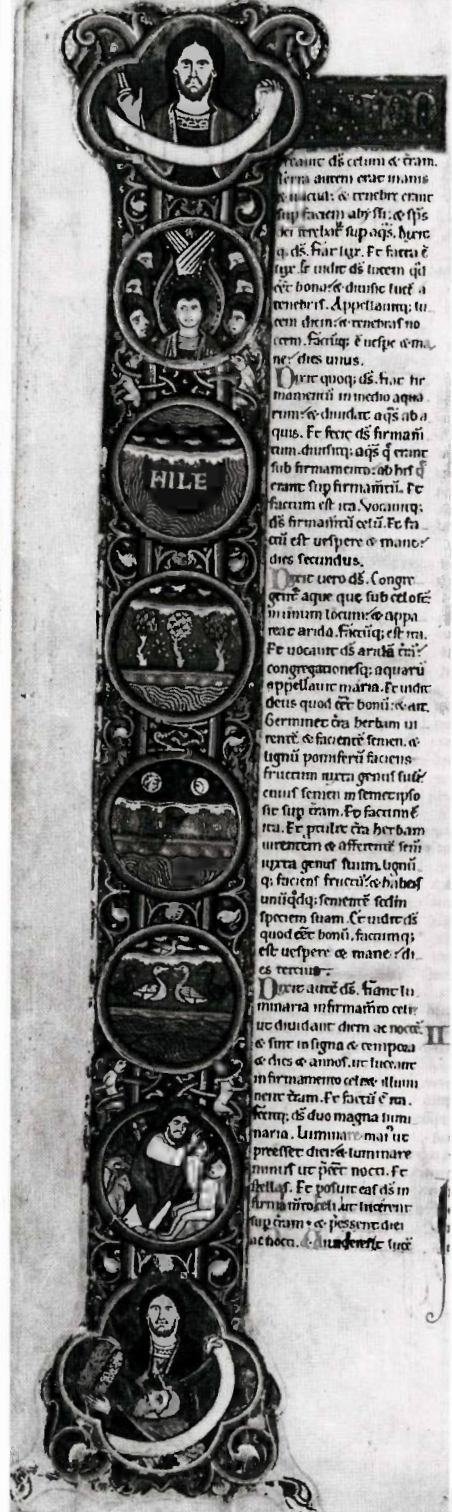 HILE
creauit dñs celum & t̃ram.
Terra autem erat inanis
& uacua: & tenebre erant
sup faciem abyssi: & sp̄s
dei ferebat̃ sup aq̄s. Dixit
q. ds̄. Fiat lux. Et facta ē
lux. Et uidit ds̄ lucem qd̄
eēt bona: & diuisit lucē a
tenebris. Appellauitq; lu
cem diem: & tenebras no
ctem. Factūq; ē uespe & ma
ne: dies unus.
Dixit quoq; ds̄. Fiat fir
mamentū in medio aqua
rum: & diuidat aq̄s ab a
quis. Et fecit ds̄ firmam̄
tum. diuisitq; aq̄s q̄ erant
sub firmamento: ab his q̄
erant sup firmam̄tū. Et
factum est ita. Vocauitq;
ds̄ firmam̄tū celū. Et fa
ctū est uespere & mane:
dies secundus.
Dixit uero ds̄. Congre
gent̃ aque que sub celo st̄
in unum locum: & appa
reat arida. Factūq; est ita.
Et uocauit ds̄ aridā t̃rā:
congregationesq; aquarū
appellauit maria. Et uidit
deus quod eēt bonū: & ait.
Germinet t̃ra herbam ui
rentē. & facientē semen. &
lignū pomiferū faciens
fructum iuxta genus suū:
cuius semen in semetipso
sit sup t̃ram. Et factum ē
ita. Et ptulit t̃ra herbam
uirentem & afferentē sem̄
iuxta genus suum. lignū
q; faciens fructū: & habēs
unūqdq; sementē scđm
speciem suam. Et uidit ds̄
quod eēt bonū. factumq;
est uespere & mane: di
es tercius.
Dixit autē ds̄. Fiant lu
minaria in firmam̄to celi:
ut diuidant diem ac noctē. II
& sint in signa & tempora
& dies & annos. ut luceant
in firmamento celi. & illumi
nent t̃ram. Et factū ē ita.
fecitq; ds̄ duo magna lumi
naria. Luminare maius ut
preesset diei: & luminare
minus ut p̄eēt nocti. Et
stellas. Et posuit eas ds̄ in
firmam̄to celi. ut lucerent
sup t̃ram. & p̄essent diei
ac nocti. & diuiderent lucē